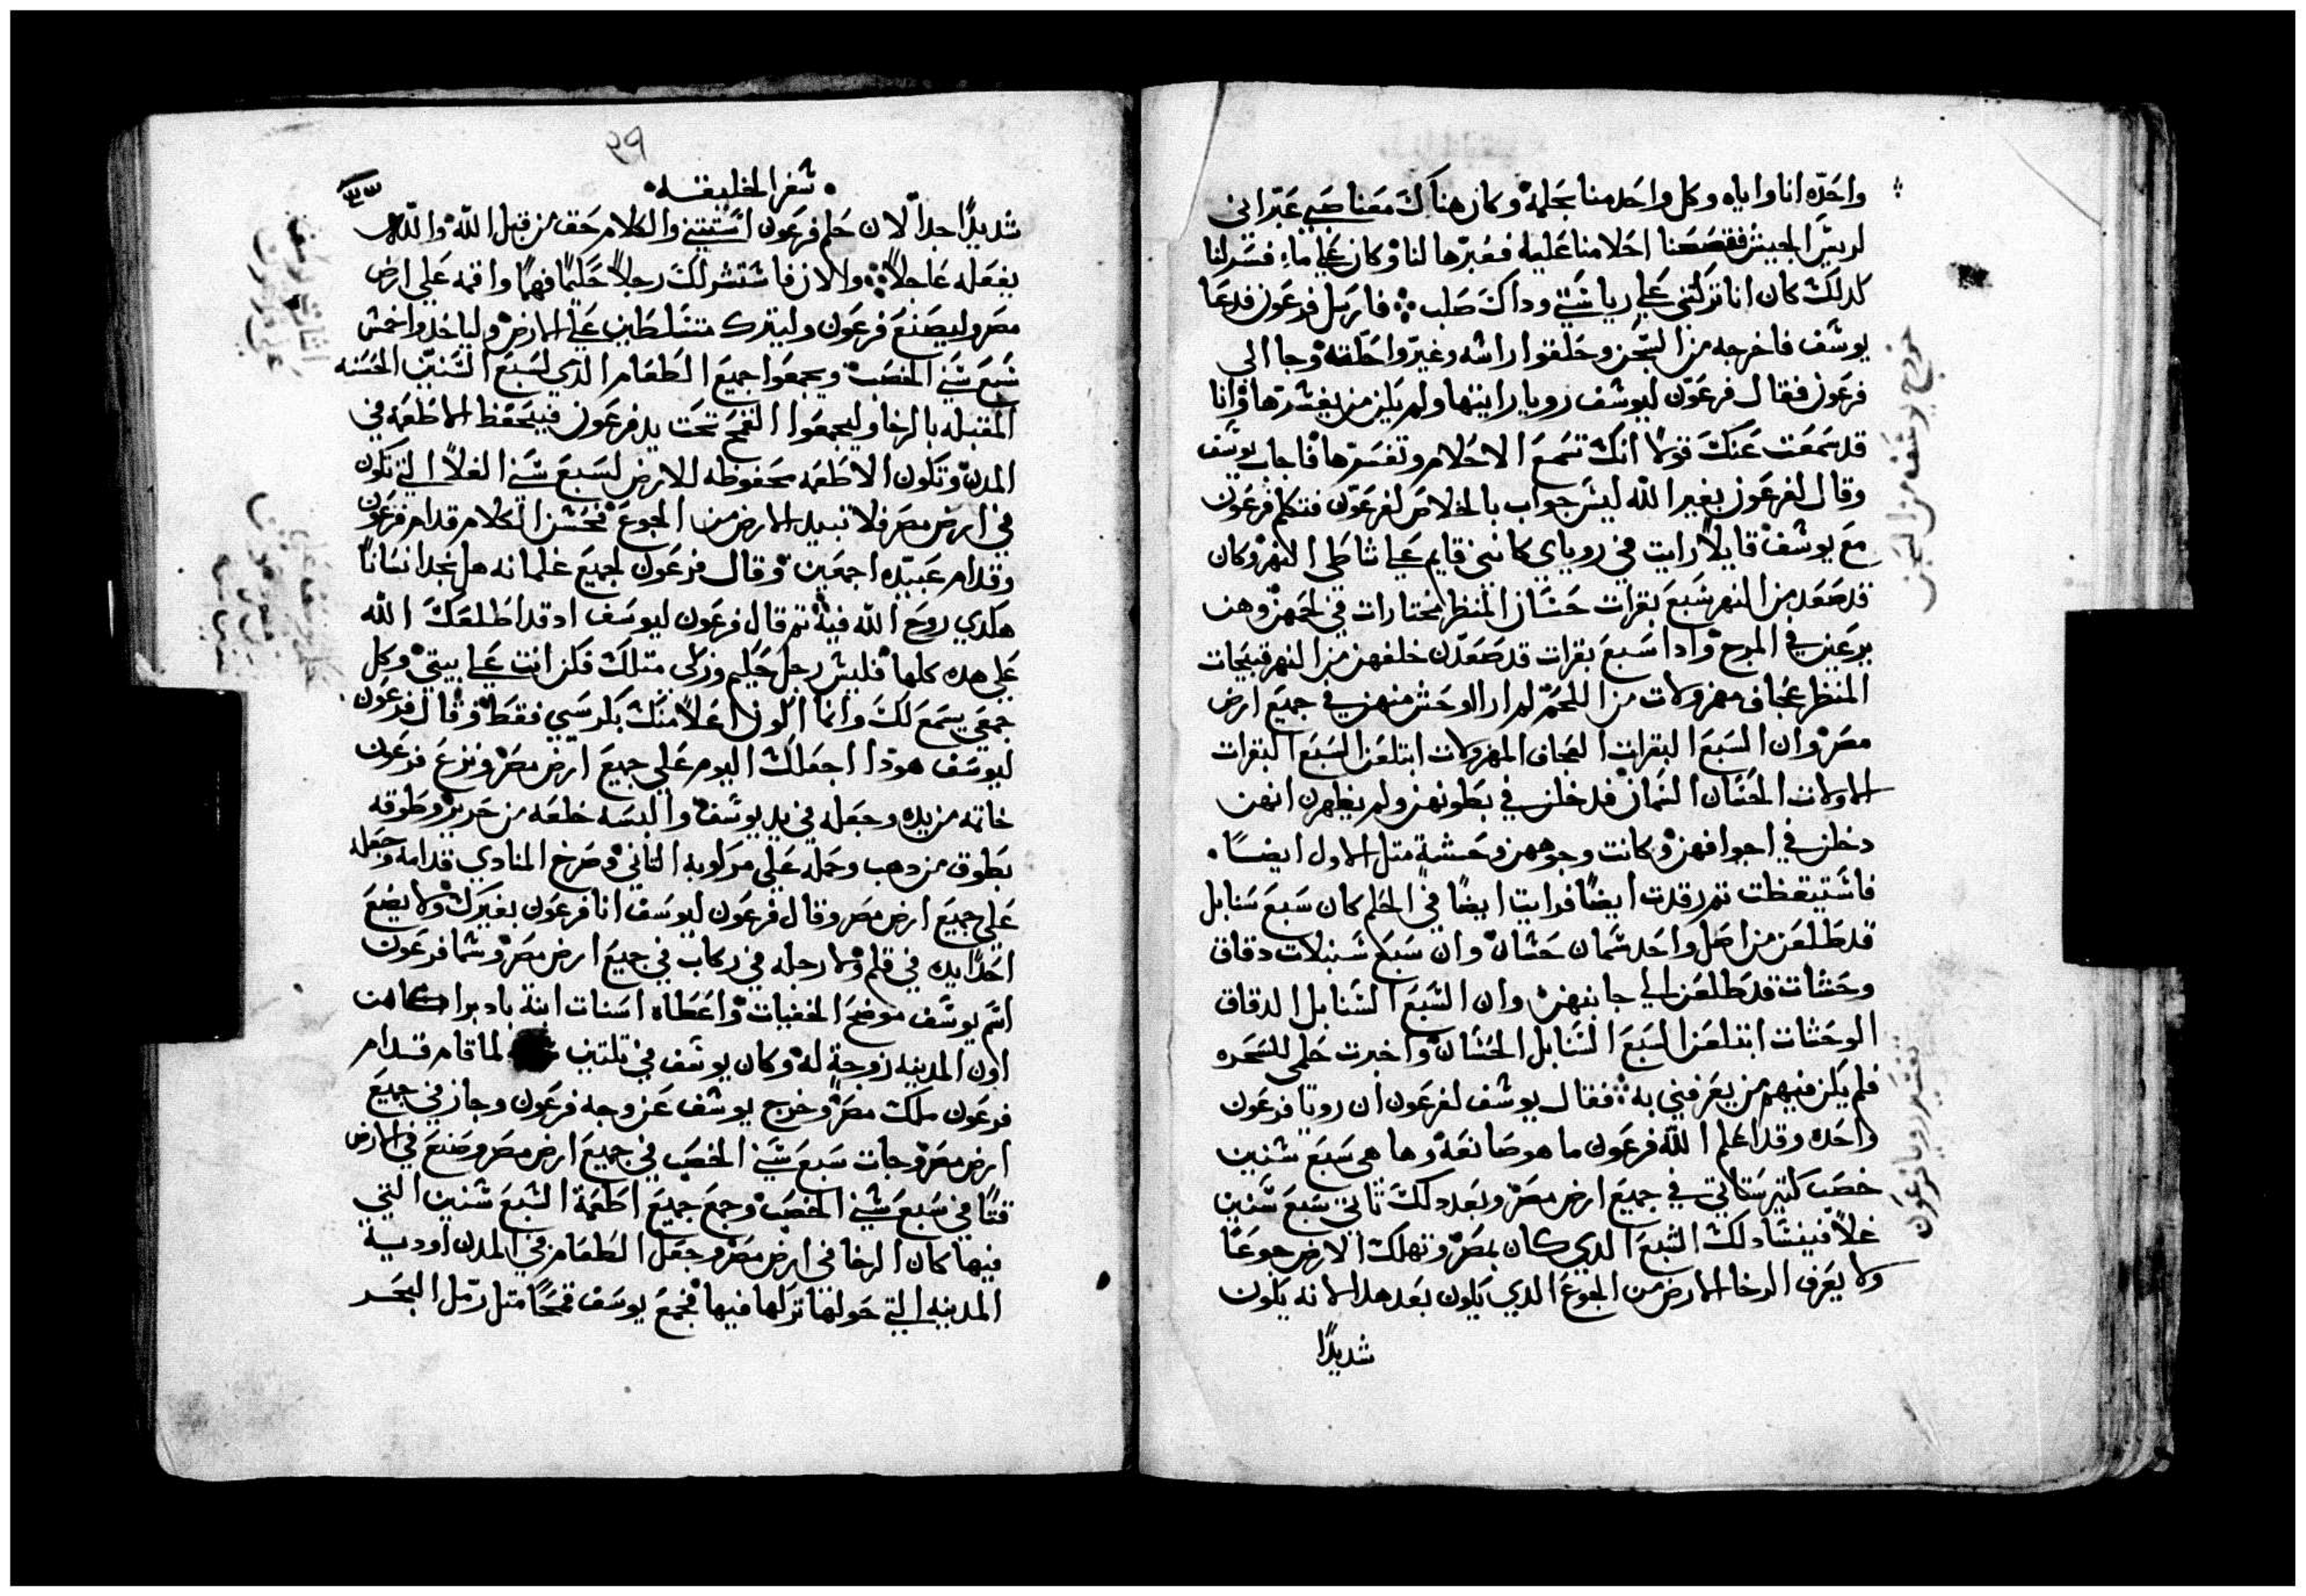 واحده انا واياه وكل واحد منا بحلمه وكان هناك معنا صبي عبراني
لريس الجيش فقصصنا احلامنا عليه فعبرها لنا وكان علي ما فسر لنا
كدلك كان انا تركني علي رياستي وداك صلب فارسل فرعون فدعا
يوسف فاخرجه من السجن وحلقوا راسه وغيروا حلته وجا الي
فرعون فقال فرعون ليوسف رويا رايتها ولم يكن من يفسرها وانا
قد سمعت عنك قولا انك تسمع الاحلام وتفسرها فاجاب يوسف
وقال لفرعون بغير الله ليس جواب بالخلاص لفرعون فتكلم فرعون
مع يوسف قايلا رايت في روياي كانني قايم علي شاطي النهر وكان
قد صعد من النهر سبع بقرات حسان المنظر مختارات في لحمهن وهن
يرعين في المرج وادا سبع بقرات قد صعدن خلفهن من النهر قبيحات
المنظر عجاف مهزولات من اللحم لم ار اوحش منهن في جميع ارض
مصر وان السبع البقرات العجاف المهزولات ابتلعن السبع البقرات
الاولات الحسان السمان فدخلن في بطونهن ولم يظهرن انهن
دخلن في اجوافهن وكانت وجوههن وحشه متل الاول ايضا
فاستيقظت تم رقدت ايضا فرايت ايضا في الحلم كان سبع سنابل
قد طلعن من اصل واحد سمان حسان وان سبع سنبلات دقاق
وحشات قد طلعن الي جانبهن وان السبع السنابل الدقاق
الوحشات ابتلعن السبع السنابل الحسان واخبرت حلمي للسحره
فلم يكن فيهم من يعرفني به فقال يوسف لفرعون ان رويا فرعون
واحده وقد اعلم الله فرعون ما هو صانعه وها هي سبع سنين
خصب كتير ستاتي في جميع ارض مصر وبعد دلك تاتي سبع سنين
غلا فينسا دلك الشبع الدي كان بمصر وتهلك الارض جوعا
ولا يعرف الرخا الارض من الجوع الدي يكون بعد هدا لانه يكون
شديدا
خروج يوسف من السجن
تفسير رويا فرعون
٩١
سفر الخليقه
شديدا جدا لان حلم فرعون اتنتيني والكلام حق من قبل الله والله
يفعله عاجلا والان فاستشر لك رجلا حكيما فهما واقمه علي ارض
مصر وليصنع فرعون وليترك متسلطين علي الارض ولياخدوا خمس
سبع سني الخصب ويجمعوا جميع الطعام الدي لسبع السنين الحسنه
المقبله بالرخا وليجمعوا القمح تحت يد فرعون فيحفظ الاطعمه في
المدن وتكون الاطعمه محفوظه للارض لسبع سني الغلا التي تكون
في ارض مصر فلا تبيد الارض من الجوع فحسن الكلام قدام فرعون
وقدام عبيده اجمعين وقال فرعون لجميع غلمانه هل نجد انسانا
هكدي روح الله فيه تم قال فرعون ليوسف اد قد اطلعك الله
علي هده كلها فليس رجل حكيم وزكي متلك فكن انت علي بيتي وكل
جمعي يسمع لك وانما اكون اعلا منك بكرسيي فقط وقال فرعون
ليوسف هودا اجعلك اليوم علي جميع ارض مصر ونزع فرعون
خاتمه من يده وجعله في يد يوسف والبسه خلعه من حرير وطوقه
بطوق من دهب وحمله علي مركوبه التاني وصرخ المنادي قدامه وجعله
علي جميع ارض مصر وقال فرعون ليوسف انا فرعون بغيرك لا يضع
احدا يده في قلم ولا رجله في ركاب في جميع ارض مصر وسما فرعون
اسم يوسف موضح الخفيات واعطاه اسنات ابنة باديرا كاهن
اون المدينه زوجة له وكان يوسف في تلتين لما قام قدام
فرعون ملك مصر وخرج يوسف عن وجه فرعون وجاز في جميع
ارض مصر وجات سبع سني الخصب في جميع ارض مصر وصنع في الارض
قتا في سبع سني الخصب وجمع جميع اطعمة السبع سنين التي
فيها كان الرخا في ارض مصر وجعل الطعام في المدن اودية
المدينه التي حولها تركها فيها فجمع يوسف قمحا متل رمل البحر